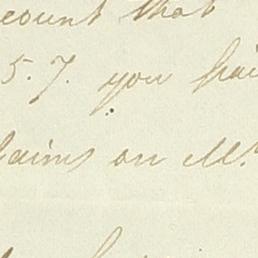 ccount that
5.7. you pai
laims on Mr